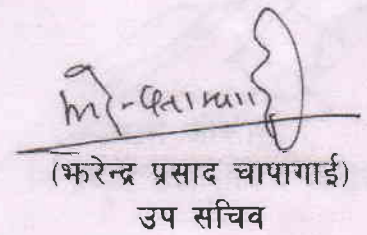 (झरेन्द्र प्रसाद चापागाई)
उप सचिव